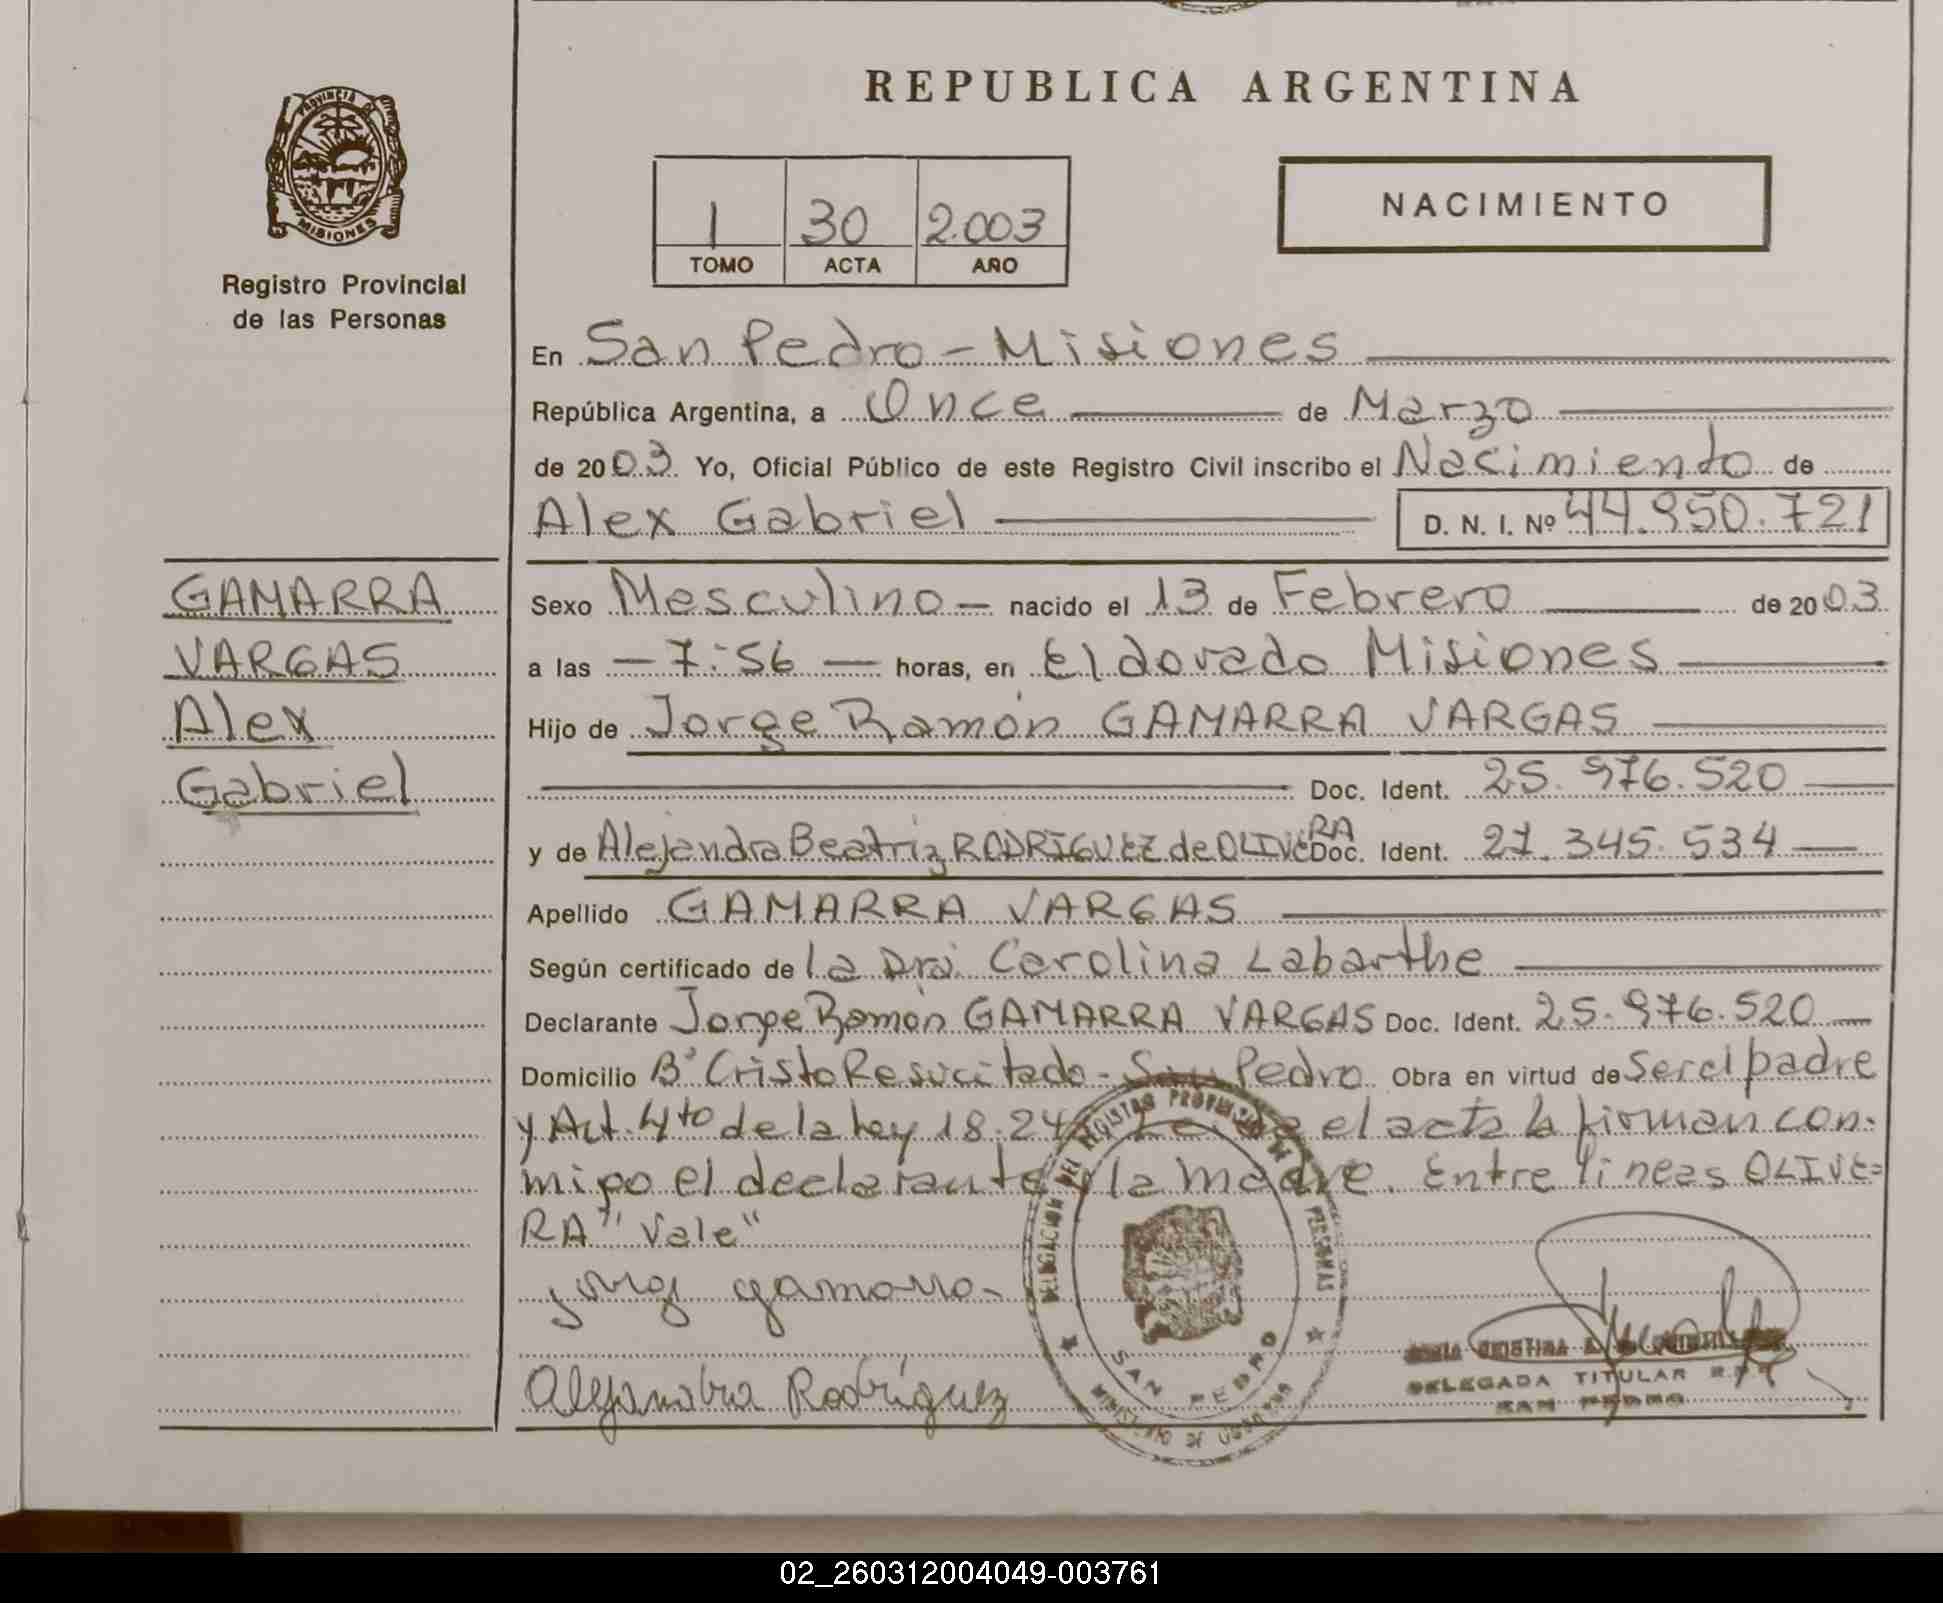 REPUBLICA ARGENTINA
PROVINCIA DE
MISIONES
Registro Provincial
de las Personas
1 30 2.003
TOMO ACTA AÑO
NACIMIENTO
En San Pedro - Misiones
República Argentina, a Once de Marzo
de 2003. Yo, Oficial Público de este Registro Civil inscribo el Nacimiento de
Alex Gabriel D. N. I. Nº 44.950.721
GAMARRA
VARGAS
Alex
Gabriel
Sexo Masculino - nacido el 13 de Febrero de 2003.
a las - 7:56 - horas, en Eldorado Misiones
Hijo de Jorge Ramón GAMARRA VARGAS
Doc. Ident. 25.976.520
y de Alejandra Beatriz RODRIGUEZ de OLIVERA Doc. Ident. 27.345.534
Apellido GAMARRA VARGAS
Según certificado de la Dra. Carolina Labarthe
Declarante Jorge Ramón GAMARRA VARGAS Doc. Ident. 25.976.520
Domicilio Bº Cristo Resucitado - San Pedro Obra en virtud de Ser el padre
y Art. 4to de la ley 18.24 el acta la firman con-
migo el declarante y la madre. Entre lineas OLIVE=
RA "Vale"
jorge gamarra
Alejandra Rodríguez
DELEGACION DEL REGISTRO PROVINCIAL DE PERSONAS
SAN PEDRO
MINISTERIO DE GOBIERNO
CRISTINA
DELEGADA TITULAR R.P.P
SAN PEDRO
02_260312004049-003761